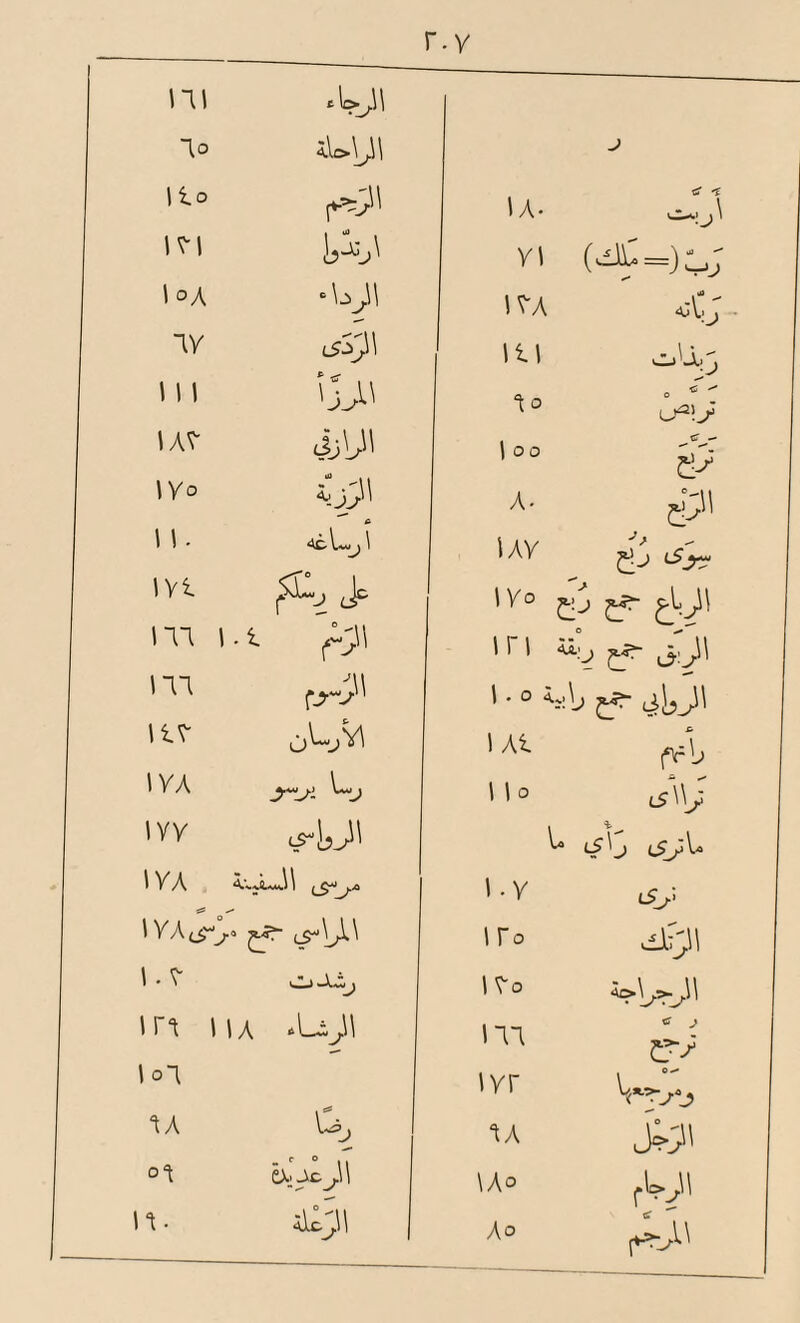 ٢٠٧
ر
أَربَّت ١٨٠
رَبّ (= مَلِك) ٧١
رَبّانَه ١٣٨
رَبَذات ١٤١
تَربَّصْ ٩٥
تَربَّع ١٥٥
الرَّبْع ٨٠
سِوى رُبَع ١٨٧
الرباع جمع رُبَع ١٧٥
الرِبَق جمع رِبْقة ١٢١
الروابى جمع رابية ١٠٥
١٨٤
١١٥
ماترى رَأْى ما
ترى ١٠٧
الرَّتَك ١٢٥
الرجراجة ١٣٥
تُرجَّع ١٦٦
ومَرْجِعها ١٧٢
الرَّجْل ٩٨
الرجام ١٨٥
المرجَّم ٨٥
الرجاء ١٦١
الراحلة ٦٥
الرَّحِم ١٤٥
ارتدّوا ١٣١
الرداء ١٥٨
الرَّدَى ٦٧
المرزَّأ ١١١
الرازقى ١٨٣
الرَّزِيّة ١٧٥
أرساغه ١١٠
على رِسْلكم ١٧٤
الرَّسْم ١٠٤ ١٦٦
الرَّسوم ١٦٦
الأرسان ١٤٣
رسا يرسو ١٧٨
الرواسى ١٧٧
مرسى السفينة ١٧٨
المراسى جمع مَرْسًى ١٧٨
رشدت ١٠٣
الرِشاء ١١٨ ١٢٩
١٥٦
رضًّا ٩٨
الرِعْديدة ٥٩
الرَّعْلة ١٩٠